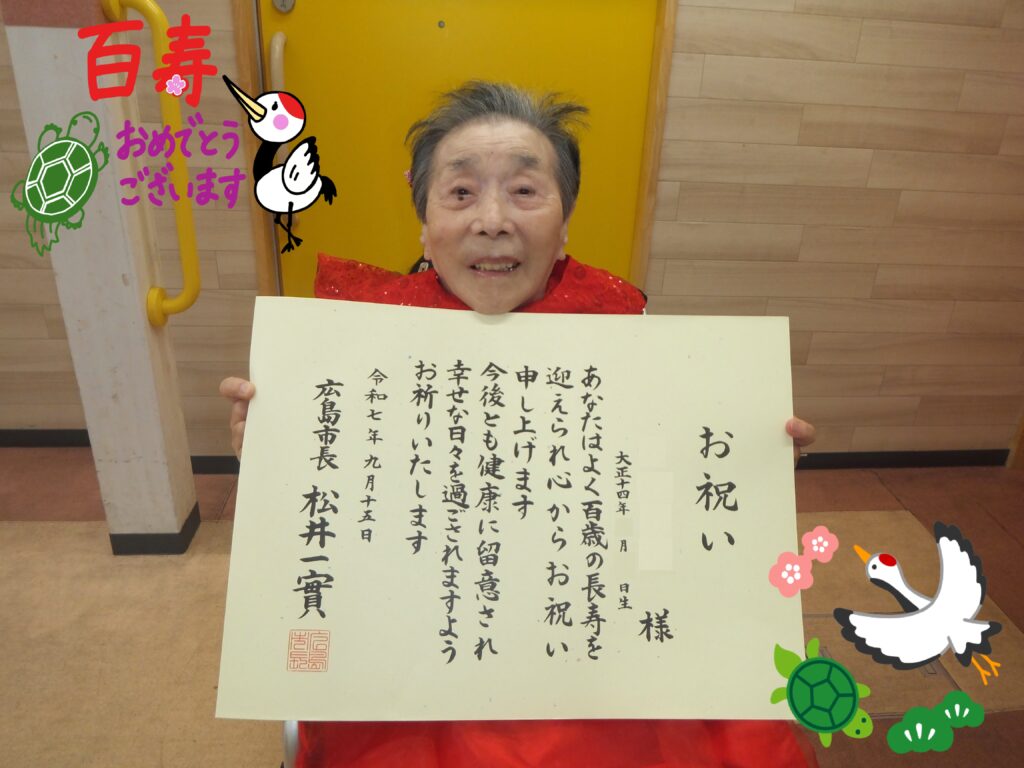 百寿
おめでとう
ございます
お祝い
様
大正十四年 月 日生
あなたはよく百歳の長寿を
迎えられ心からお祝い
申し上げます
今後とも健康に留意され
幸せな日々を過ごされますよう
お祈りいたします
令和七年九月十五日
広島市長 松井一實
広島市長